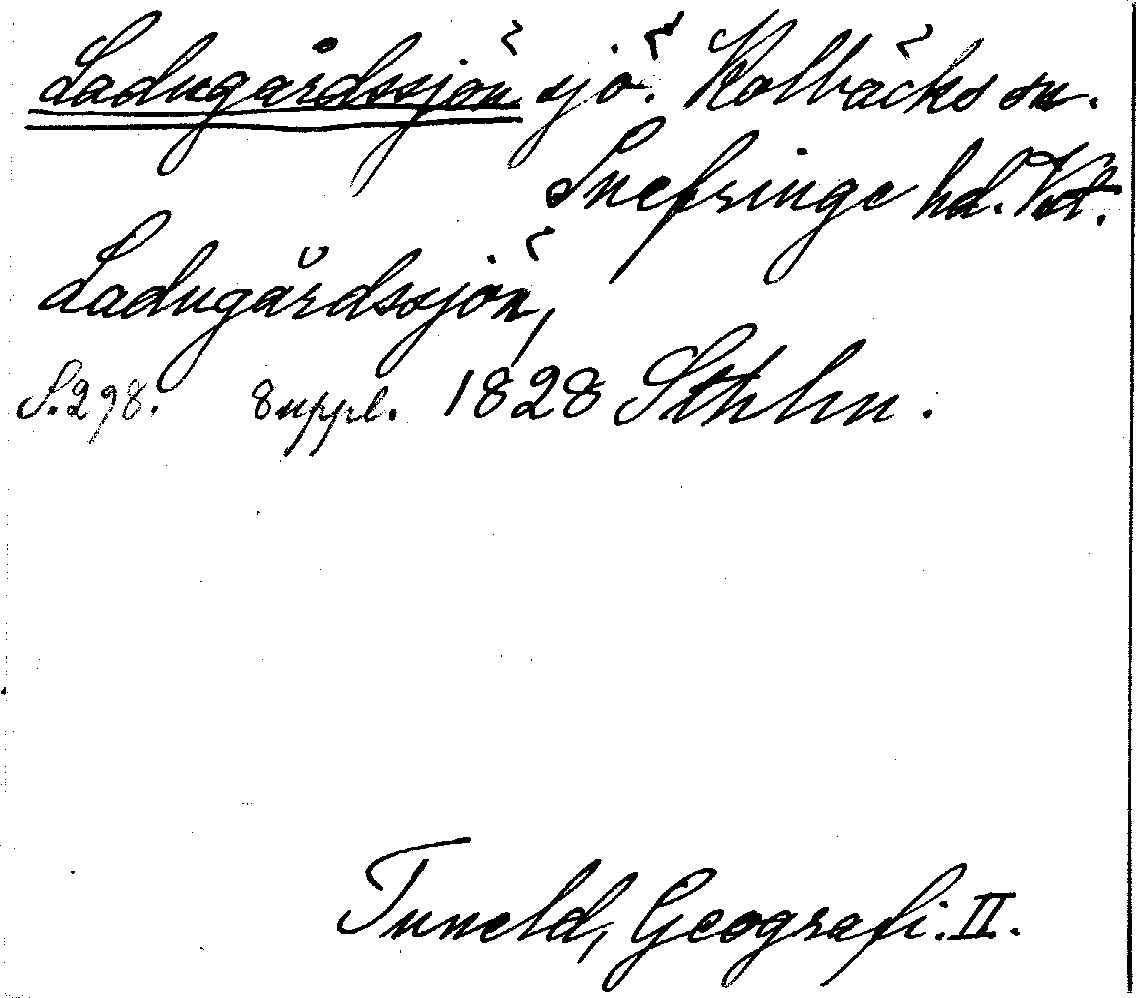 Ladugårdssjön sjö. Kolbäcks sn.
Snefringe hd. Vstm.
Ladugårdssjön,
S. 298. 8 uppl. 1828 Sthlm.
Tuneld, Geografi. II.